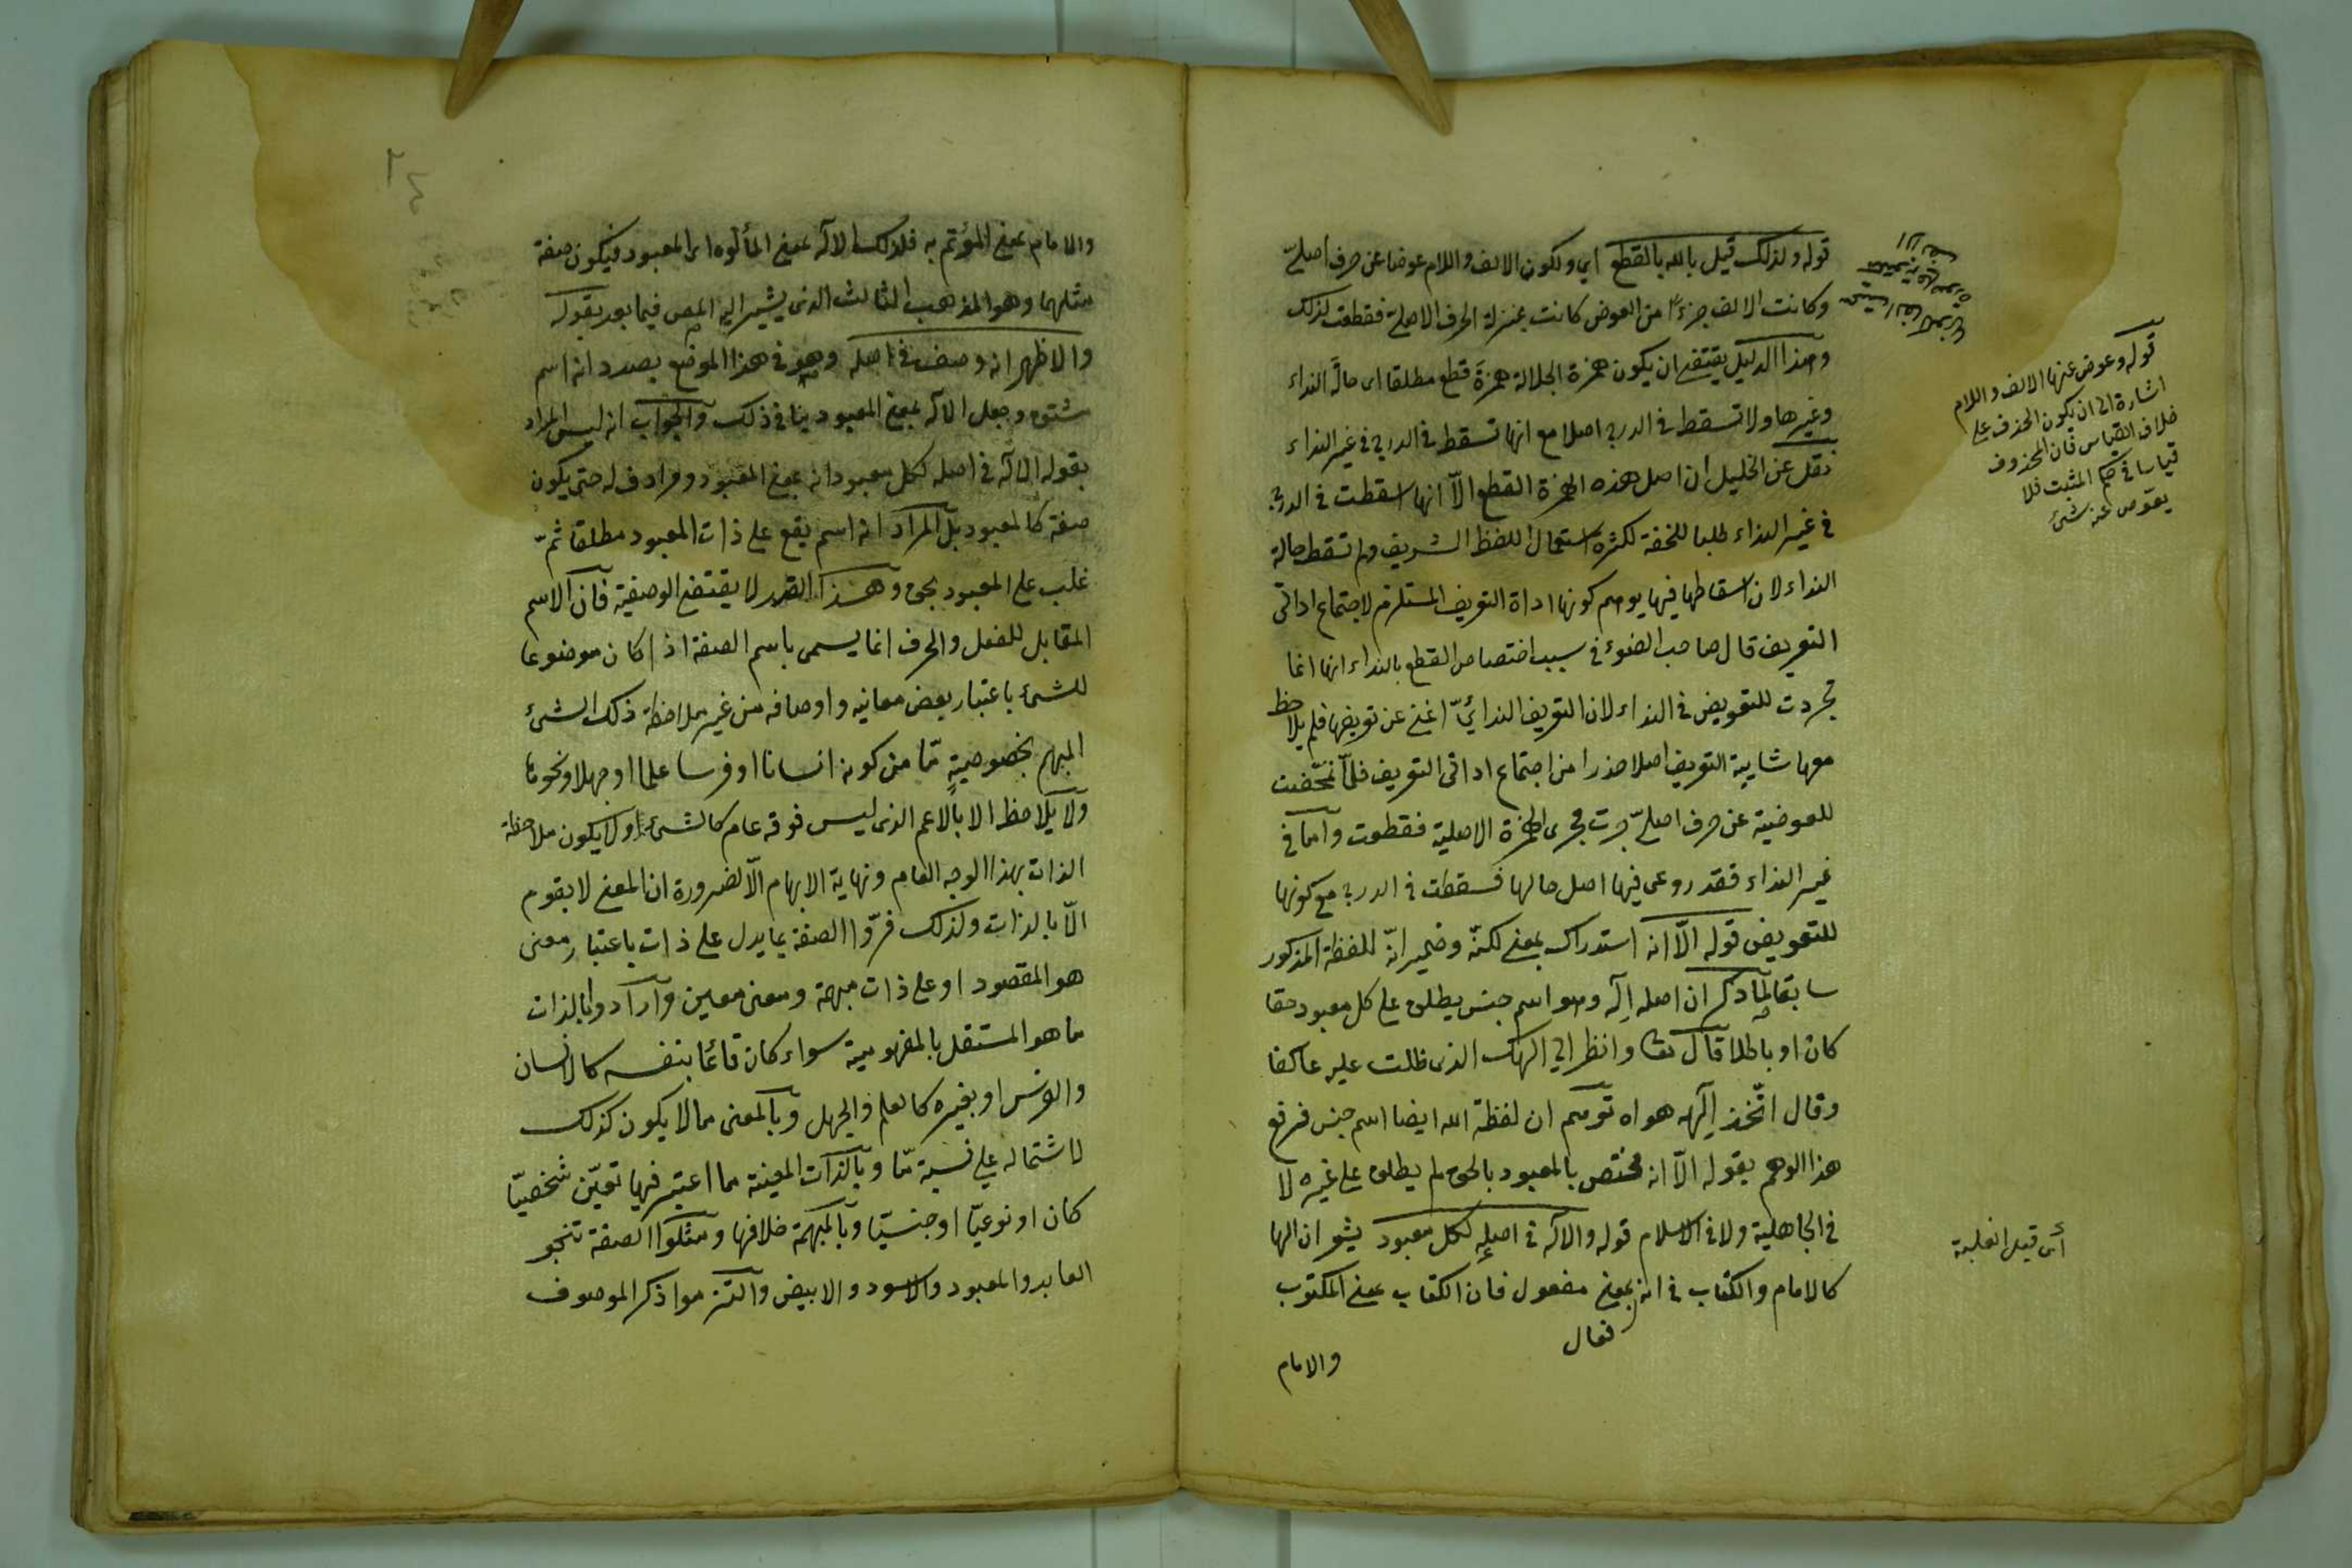 قوله ولذلك قيل يا الله بالقطع اي ولكون الالف واللام عوضا عن حرف اصليّ
وكانت الالف جزءًا من العوض كانت بمنزلة الحرف الاصلية فقطعت لذلك
وهذا الدليل يقتضى ان يكون همزة الجلالة همزةَ قطع مطلقا اى حالَةَ النداء
وغيرها ولا تسقط فى الدرج اصلا مع انها تسقط فى الدرج فى غير النداء
نقل عن الخليل ان اصل هذه الهمزة القطع الّا انها اسقطت فى الدرج
فى غير النداء طلبا للخفة لكثرة استعمال اللفظ الشريف ولم تسقط حالة
النداء لان اسقاطها فيها يوهم كونها اداة التعريف المستلزم لاجتماع اداتى
التعريف قال صاحب الضوء فى سبب اختصاص القطع بالنداء انها انما
تجردت للتعويض فى النداء لان التعريف الندائيّ اغنى عن تعريفها فلم يلاحظ
معها شايبة التعريف اصلا حذرا من اجتماع اداتى التعريف فلمّا تمحّضت
للعوضية عن حرف اصليّ جرت مجرى الهمزة الاصلية فقطعت وامّا فى
غير النداء فقد روعى فيها اصل حالها فسقطت فى الدرج مع كونها
للتعويض قوله الّا انه استدراك بمعنى لكنّه وضمير انّه للفظة المذكور
سابقا لمّا ذكر ان اصله اِلَه وهو اسم جنس يطلق على كل معبود حقا
كان او باطلا قال تعا وانظر الى الهك الذى ظلت عليه عاكفا
وقال اتّخذ اِلَهه هواه توهم ان لفظة الله ايضا اسم جنس فرفع
هذا الوهم بقوله الّا انه مختص بالمعبود بالحق لم يطلق على غيره لا
فى الجاهلية ولا فى الاسلام قوله والاله فى اصله لكل معبود يشعر ان الها
كالامام والكتاب فى انه بمعنى مفعول فان الكتاب بمعنى المكتوب
فعال
والامام
قوله وعوض عنها الالف واللام
اشارة الى ان يكون الحذف على
خلاف القياس فان المحذوف
قياسا فى حكم المثبت فلا
يعوّض عنه شئ
اى قبل الغلبة
والامام بمعنى المؤتم به فلذلك الاله بمعنى المألوه اى المعبود فيكون صفة
مثلهما وهو المذهب الثالث الذى يشير اليه المص فيما بعد بقوله
والاظهر انه وصف فى اصله وهو فى هذا الموضع بصدد انه اسم
مشتق وجعل الاله بمعنى المعبود ينافى ذلك والجواب انه ليس المراد
بقوله الاله فى اصله لكل معبود انه بمعنى المعبود ومرادف له حتى يكون
صفة كالمعبود بل المراد انه اسم يقع على ذات المعبود مطلقا ثمّ
غلب على المعبود بحق وهذا القدر لا يقتضى الوصفية فان الاسم
المقابل للفعل والحرف انما يسمى باسم الصفة اذا كان موضوعا
للشئ باعتبار بعض معانيه واوصافه من غير ملاحظة ذلك الشئ
المبهم بخصوصيةٍ مّا من كونه انسانا او فرسا علما او جهلا ونحوها
ولا يلاحظ الا بالاعم الذى ليس فوقه عام كالشئ ولا يكون ملاحظة
الذات بهذا الوجه العام ونهاية الابهام الّا لضرورة ان المعنى لا يقوم
الّا بالذات ولذلك فسّروا الصفة بما يدل على ذات باعتبار معنى
هو المقصود او على ذات مبهمة ومعنى معين وارادوا بالذات
ما هو المستقل بالمفهومية سواء كان قائما بنفسه كالانسان
والفرس او بغيره كالعلم والجهل وبالمعنى ما لا يكون كذلك
لاشتماله على نسبة مّا وبالذات المعينة ما اعتبر فيها تعيّن شخصيّا
كان او نوعيّا او جنسيّا وبالمبهمة خلافها ومثلوا الصفة بنحو
العابد والمعبود والاسود والابيض والتزموا ذكر الموصوف